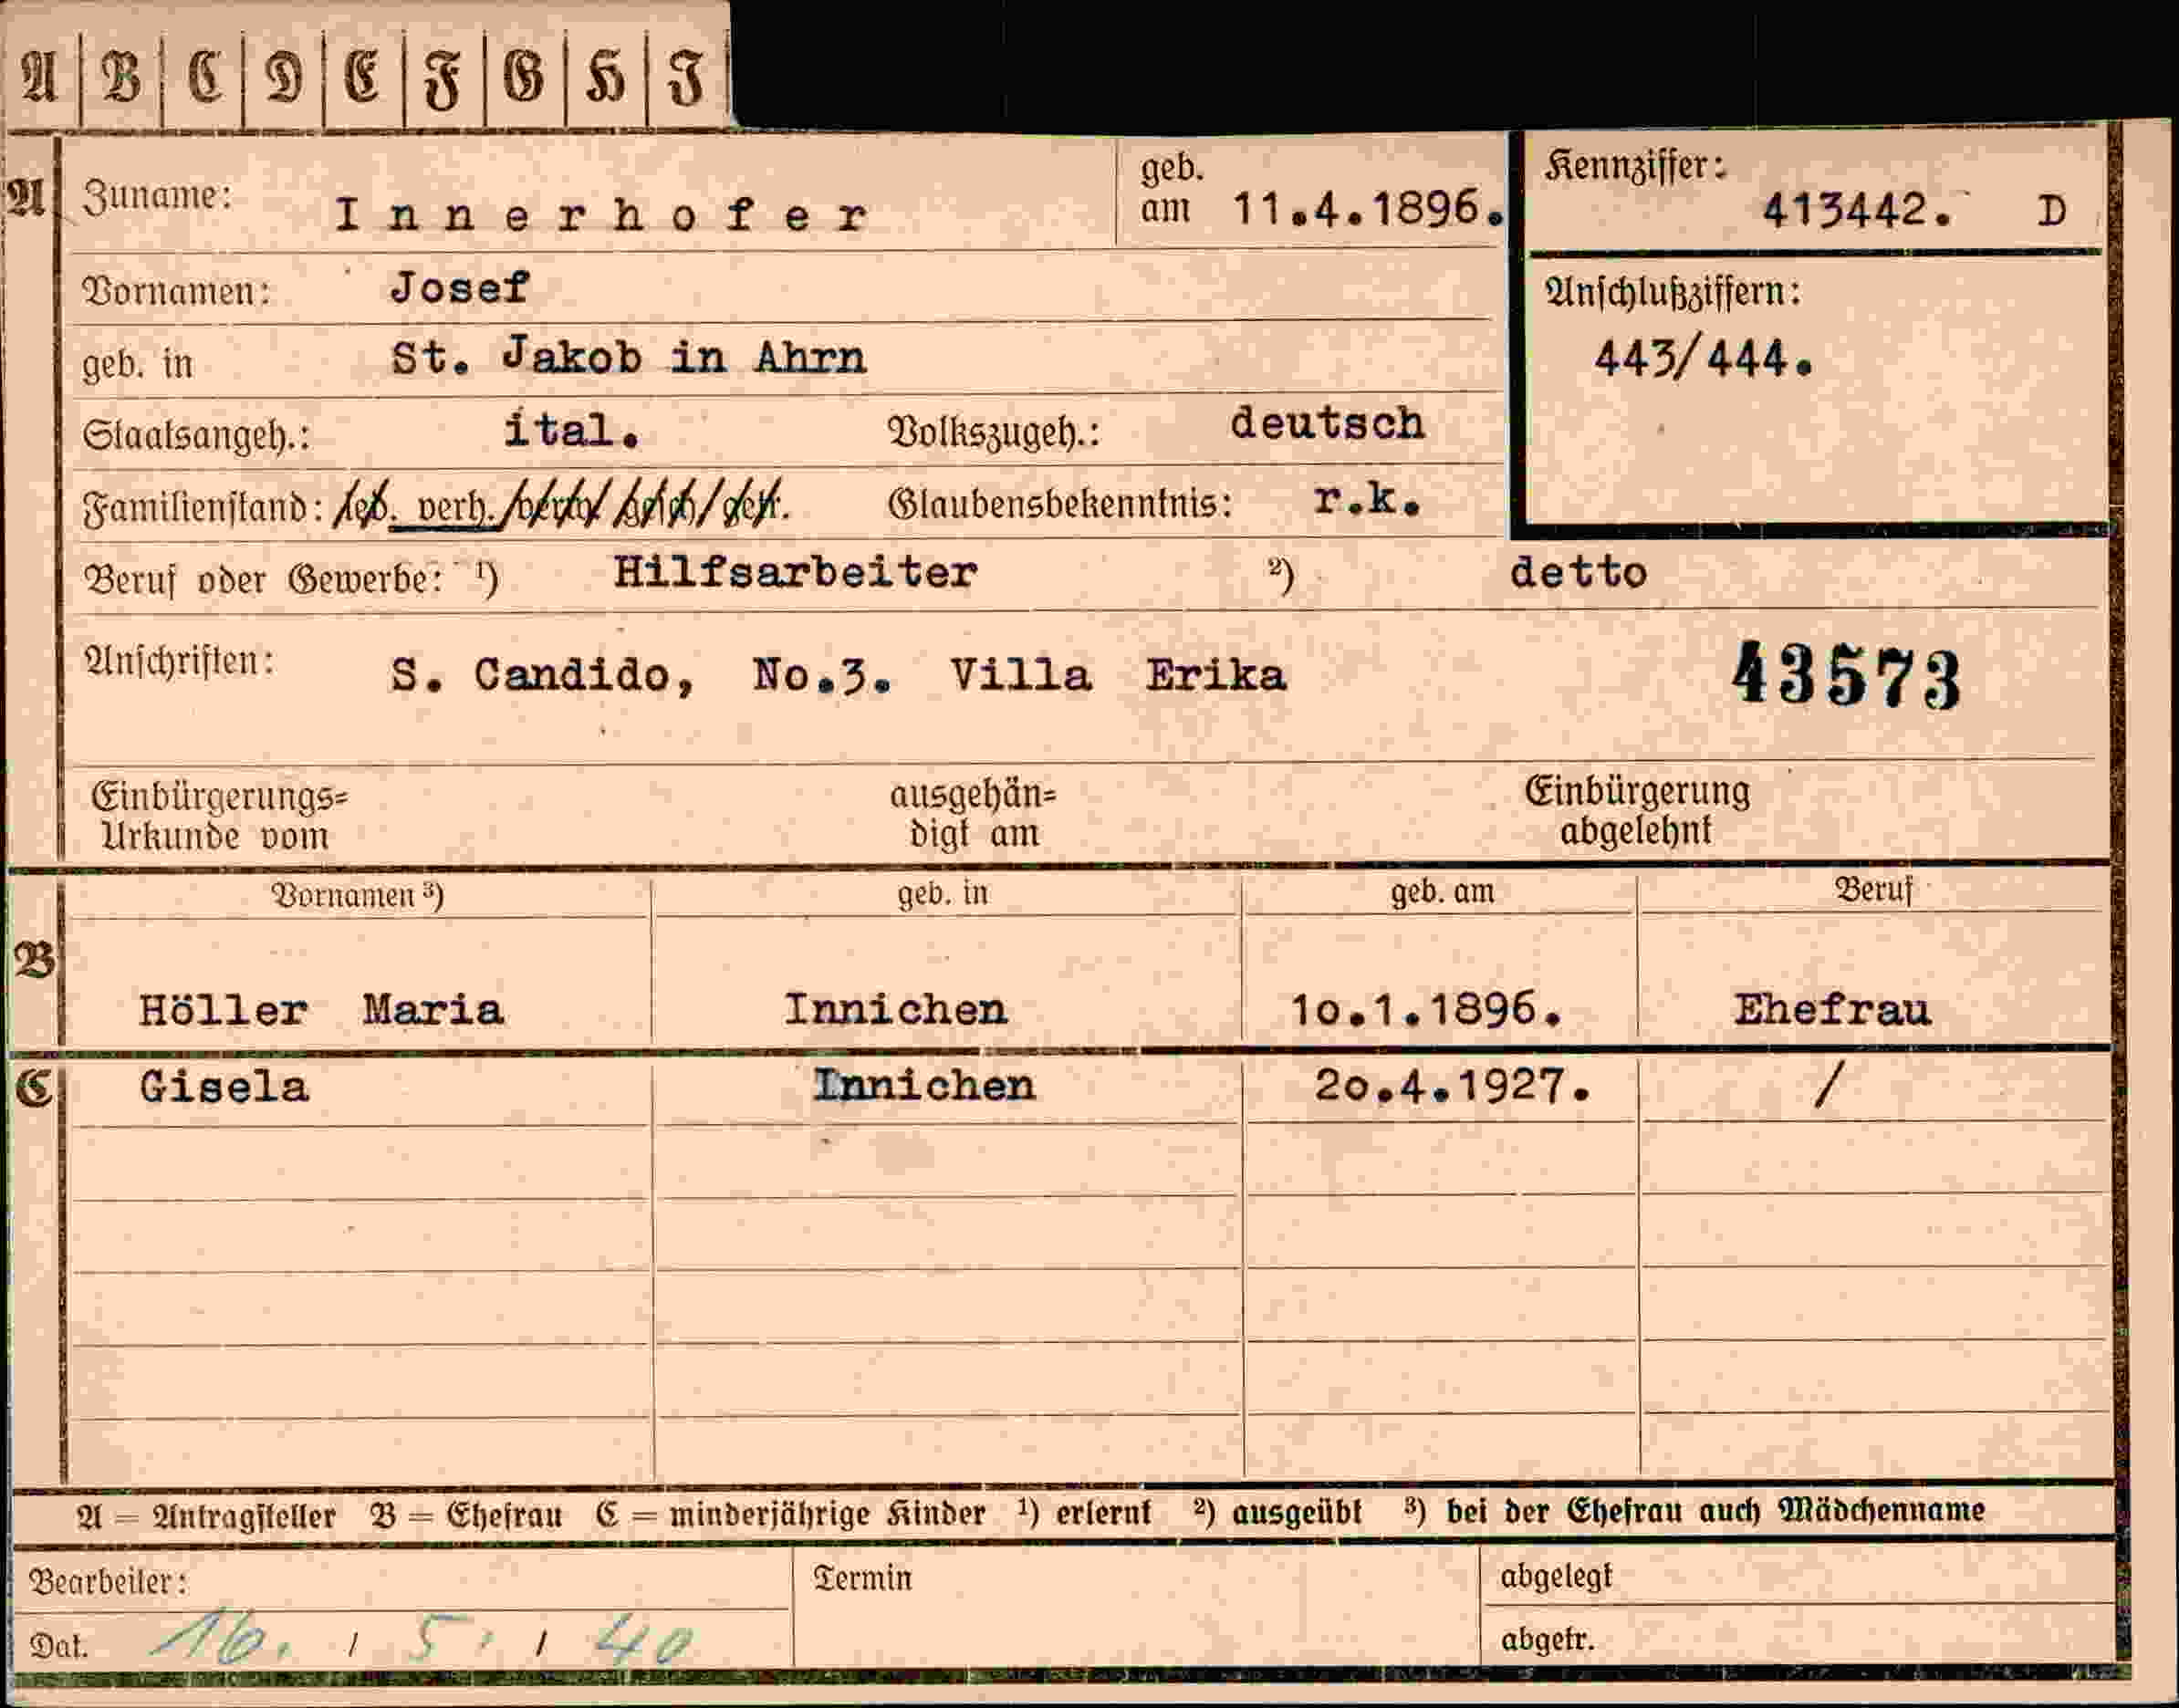 A B C D E F G H I
A Zuname: Innerhofer geb. am 11.4.1896. Kennziffer: 413442. D
Vornamen: Josef Anschlußziffern:
geb. in St. Jakob in Ahrn 443/444.
Staatsangeh.: ital. Volkszugeh.: deutsch
Familienstand: led. verh. verw. gesch. get. Glaubensbekenntnis: r.k.
Beruf oder Gewerbe: ¹) Hilfsarbeiter ²) detto
Anschriften: S. Candido, No.3. Villa Erika 43573
Einbürgerungs= ausgehän= Einbürgerung
Urkunde vom digt am abgelehnt
B Vornamen ³) geb. in geb. am Beruf
Höller Maria Innichen 10.1.1896. Ehefrau
C Gisela Innichen 20.4.1927. /
A = Antragsteller B = Ehefrau C = minderjährige Kinder ¹) erlernt ²) ausgeübt ³) bei der Ehefrau auch Mädchenname
Bearbeiter: Termin abgelegt
Dat. 16. / 5. / 40 abgetr.